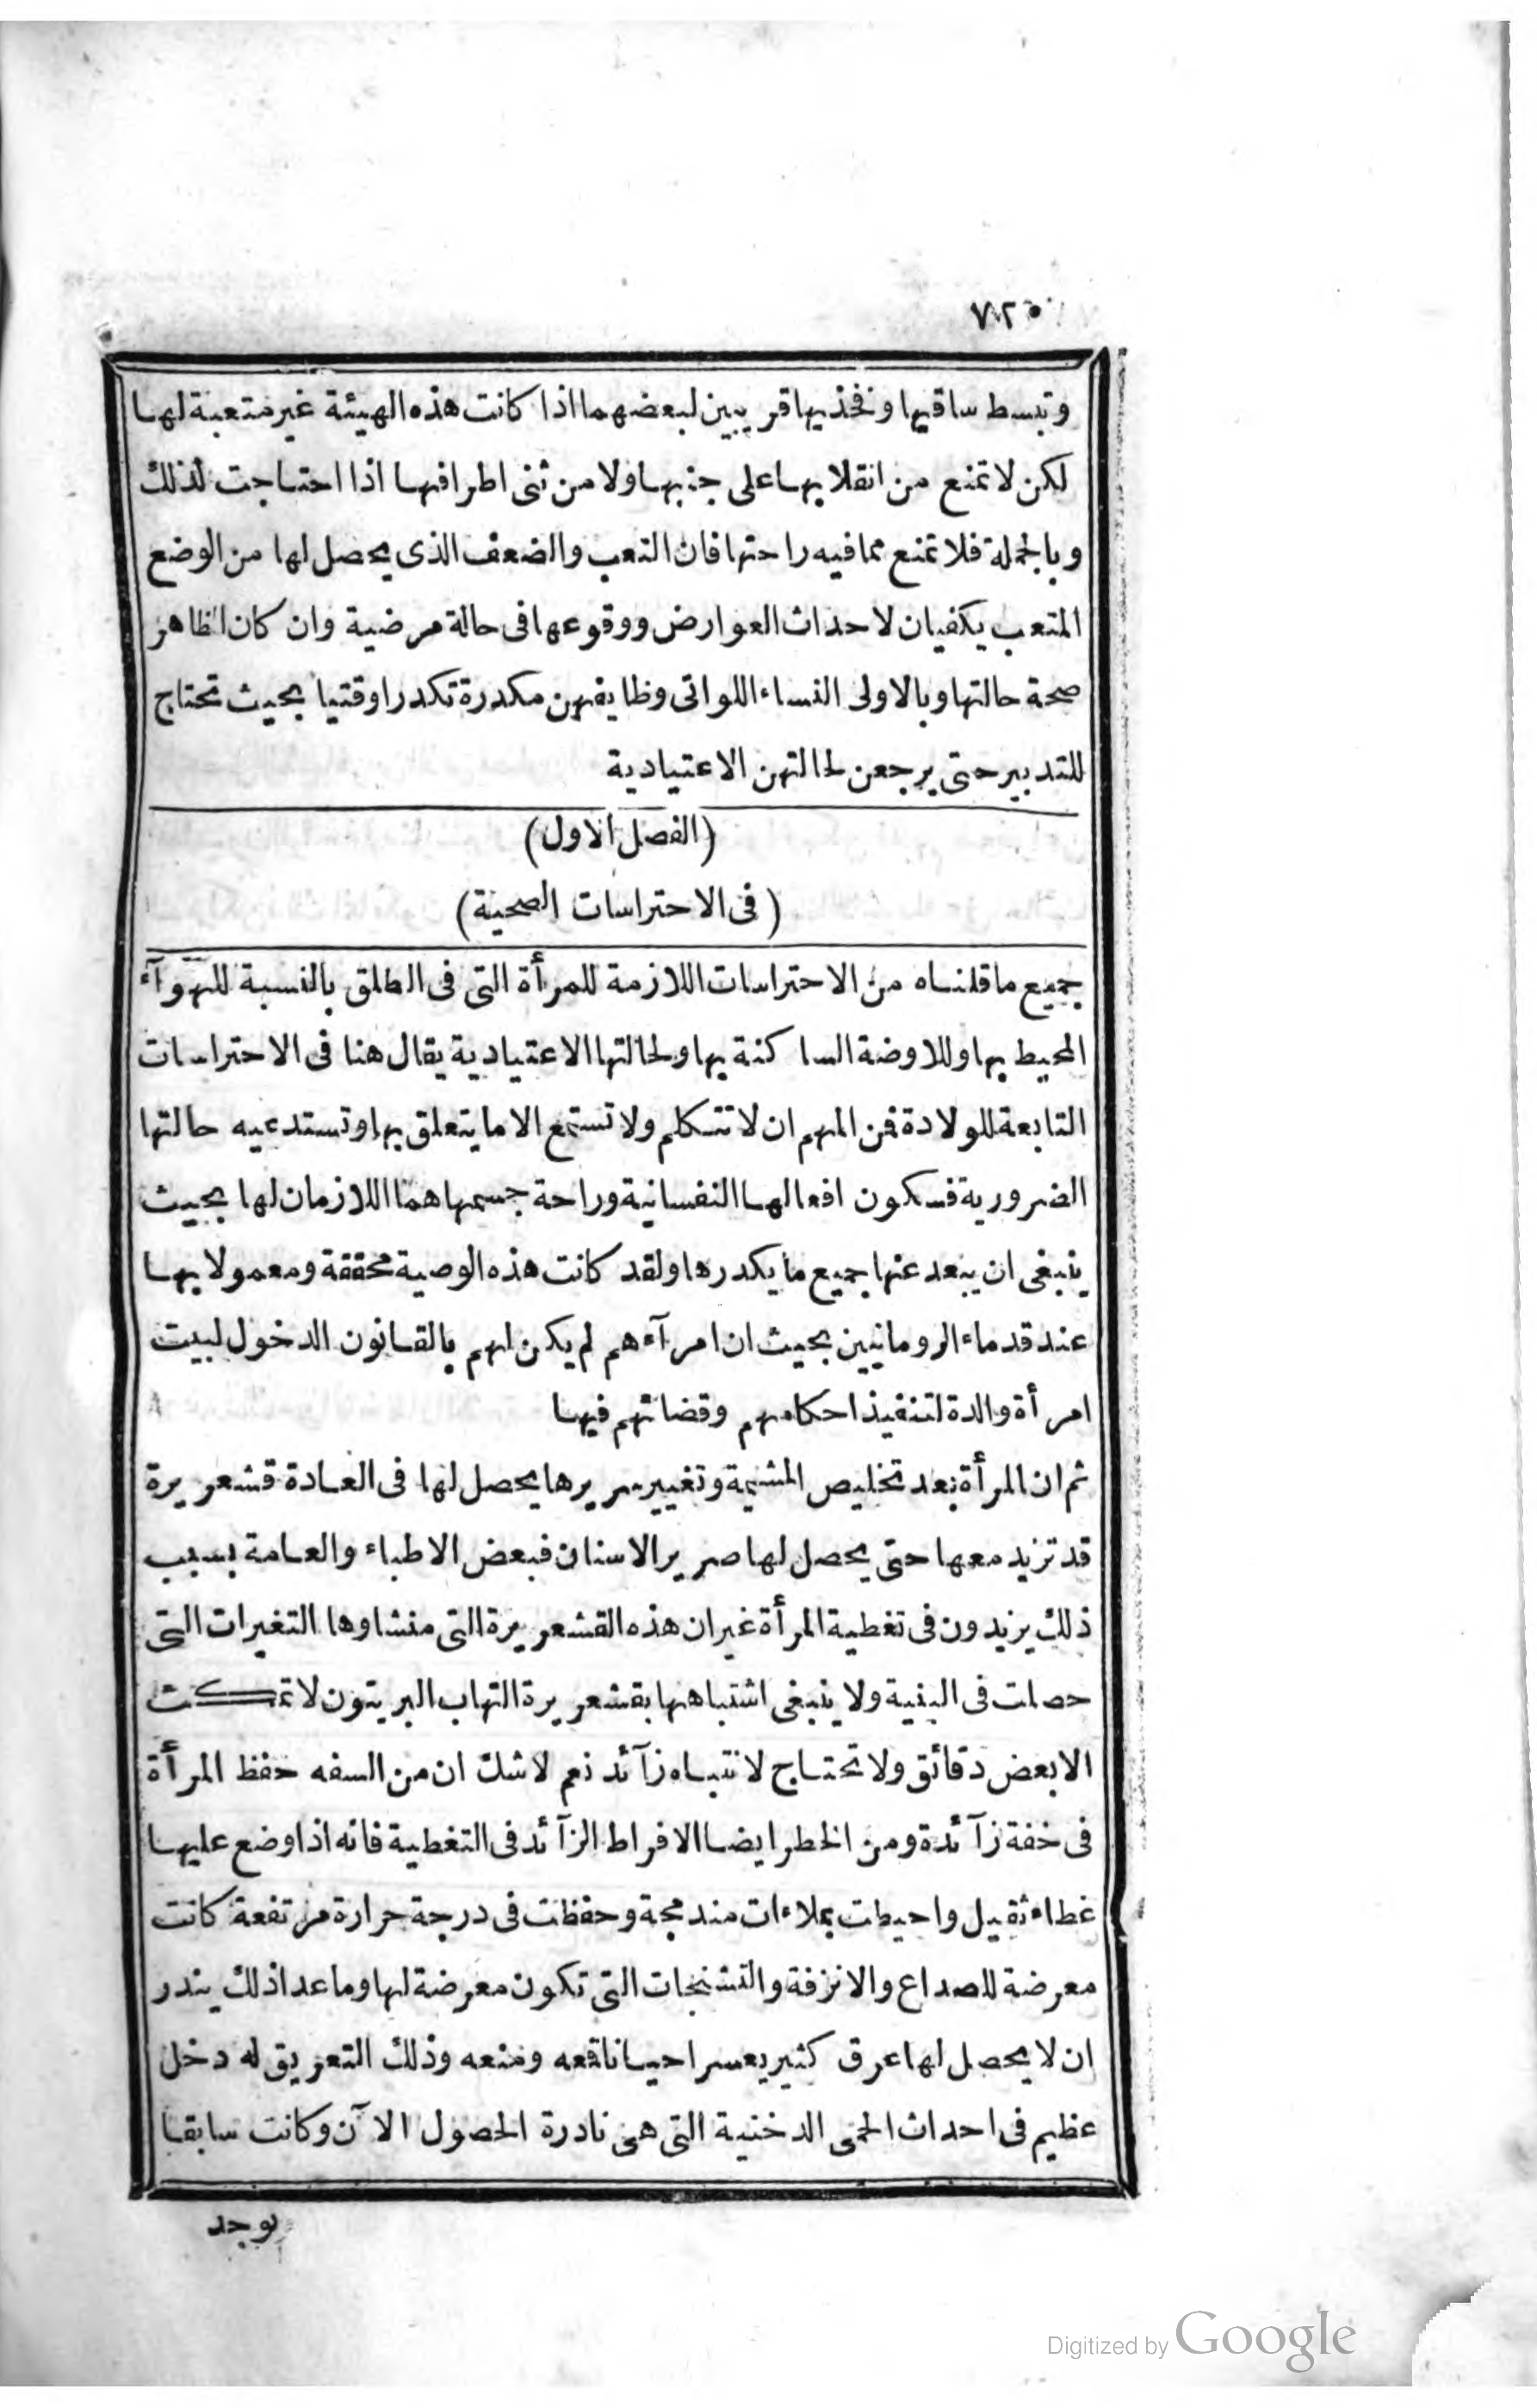 ٧٢٥
وتبسط ساقيها وفخذيها قريبين لبعضهما اذا كانت هذه الهيئة غير متعبة لها
لكن لا تمنع من انقلابها على جنبها ولا من ثنى اطرافها اذا احتاجت لذلك
وبالجملة فلا تمنع مما فيه راحتها فان التعب والضعف الذى يحصل لها من الوضع
المتعب يكفيان لاحداث العوارض ووقوعها فى حالة مرضية وان كان الظاهر
صحة حالتها وبالاولى النساء اللواتى وظايفهن مكدرة تكدرا وقتيا بحيث تحتاج
للتدبير حتى يرجعن لحالتهن الاعتيادية
(الفصل الاول)
(فى الاحتراسات الصحية)
جميع ما قلناه من الاحتراسات اللازمة للمرأة التى فى الطلق بالنسبة للهوآء
المحيط بها وللاوضة الساكنة بها ولحالتها الاعتيادية يقال هنا فى الاحتراسات
التابعة للولادة فمن المهم ان لا تتكلم ولا تستمع الا ما يتعلق بها وتستدعيه حالتها
الضرورية فسكون افعالها النفسانية وراحة جسمها هما اللازمان لها بحيث
ينبغى ان يبعد عنها جميع ما يكدرها ولقد كانت هذه الوصية محققة ومعمولا بها
عند قدماء الرومانيين بحيث ان امرآءهم لم يكن لهم بالقانون الدخول لبيت
امرأة والدة لتنفيذ احكامهم وقضائهم فيها
ثم ان المرأة بعد تخليص المشيمة وتغيير سريرها يحصل لها فى العادة قشعريرة
قد تزيد معها حتى يحصل لها صرير الاسنان فبعض الاطباء والعامة بسبب
ذلك يزيدون فى تغطية المرأة غير ان هذه القشعريرة التى منشاوها التغيرات التى
حصلت فى البنية ولا ينبغى اشتباهها بقشعريرة التهاب البريتون لا تمكث
الا بعض دقائق ولا تحتاج لانتباه زآئد نعم لا شك ان من السفه حفظ المرأة
فى خفة زآئدة ومن الخطر ايضا الافراط الزآئد فى التغطية فانه اذا وضع عليها
غطاء ثقيل واحيطت بملاءات مندمجة وحفظت فى درجة حرارة مرتفعة كانت
معرضة للصداع والانزفة والتشنجات التى تكون معرضة لها وما عدا ذلك يندر
ان لا يحصل لها عرق كثير يعسر احيانا قعه ومنعه وذلك التعريق له دخل
عظيم فى احداث الحمى الدخنية التى هى نادرة الحصول الآن وكانت سابقا
توجد
Digitized by Google